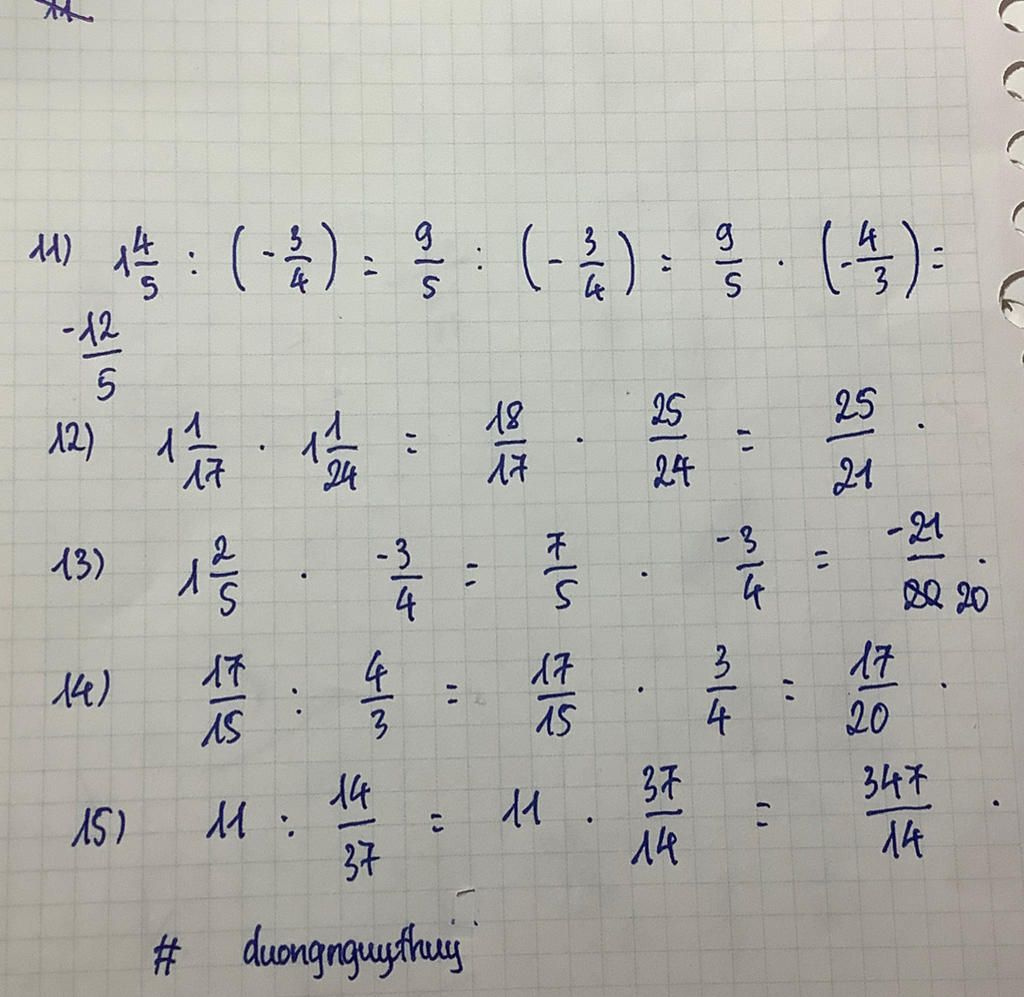 11) 1 4/5 : (-3/4) = 9/5 : (-3/4) = 9/5 . (-4/3) =
-12/5
12) 1 1/17 . 1 1/24 = 18/17 . 25/24 = 25/21 .
13) 1 2/5 . -3/4 = 7/5 . -3/4 = -21/20 .
14) 17/15 : 4/3 = 17/15 . 3/4 = 17/20 .
15) 11 : 14/37 = 11 . 37/14 = 347/14 .
# duongnguythuy